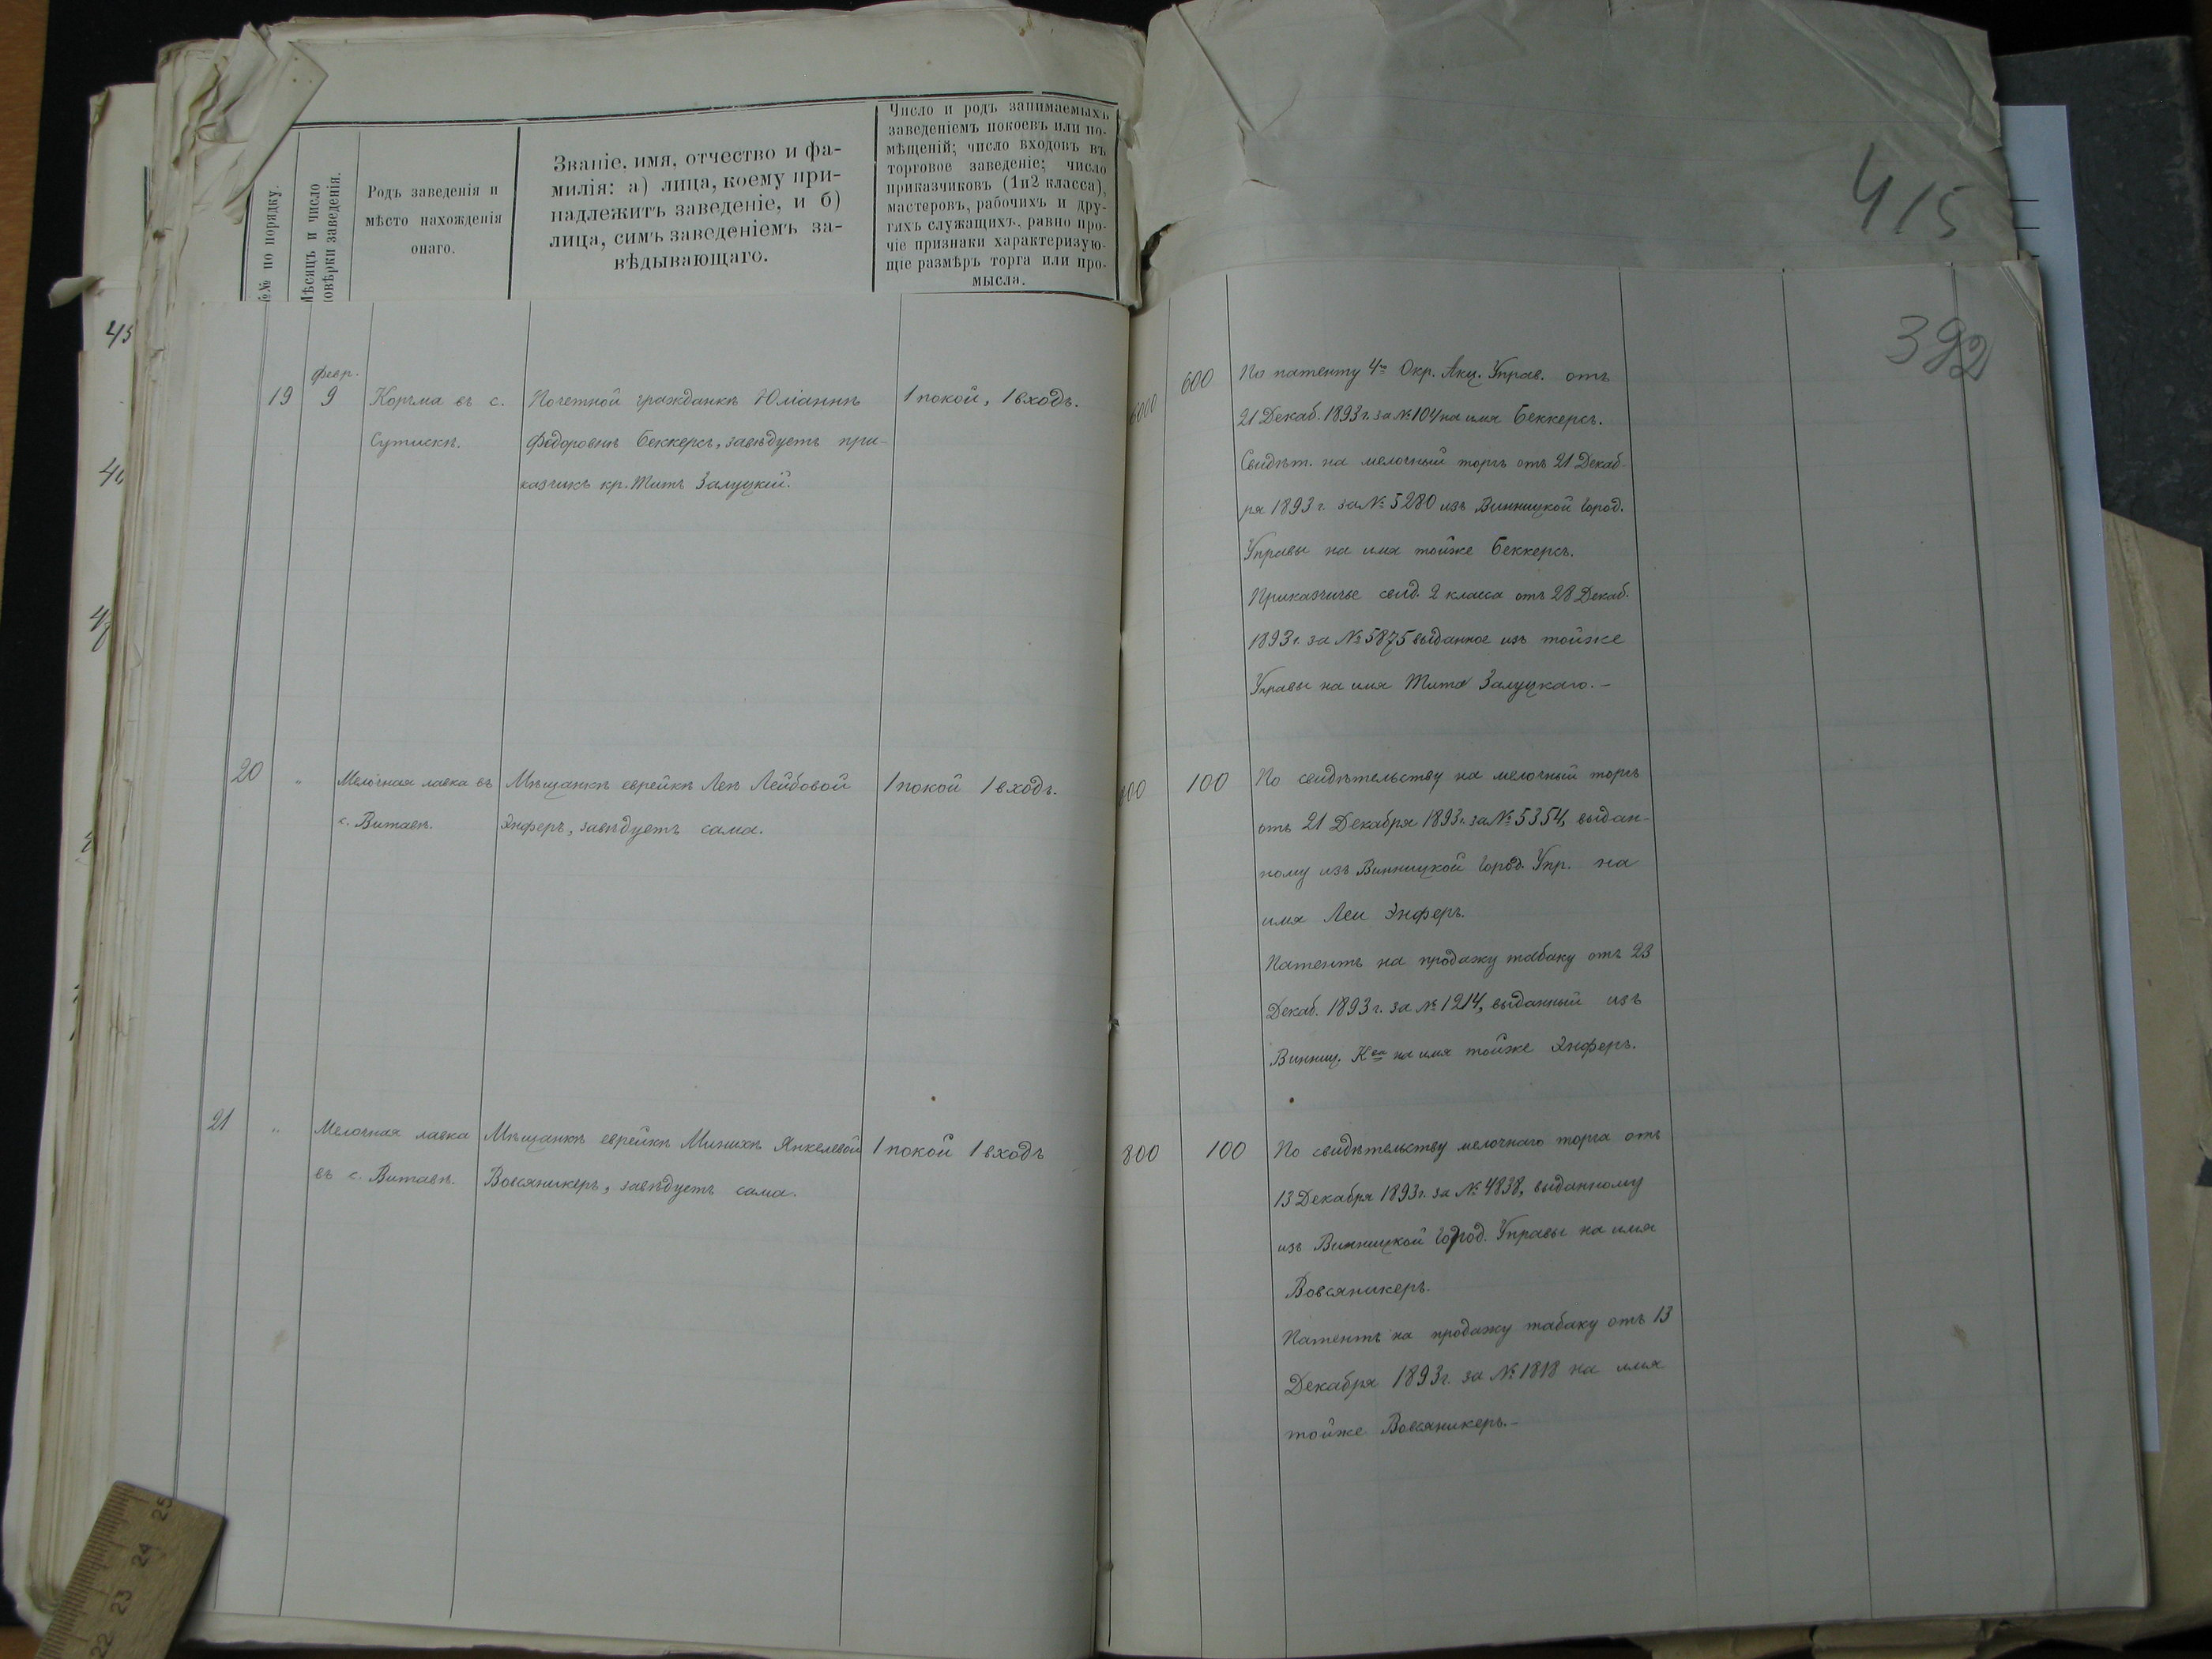 415
392
№№ по порядку.
Мѣсяцъ и число
повѣрки заведенія.
Родъ заведенія и
мѣсто нахожденія
онаго.
Званіе, имя, отчество и фа-
милія: а) лица, коему при-
надлежитъ заведеніе, и б)
лица, симъ заведеніемъ за-
вѣдывающаго.
Число и родъ занимаемыхъ
заведеніемъ покоевъ или по-
мѣщеній; число входовъ въ
торговое заведеніе; число
приказчиковъ (1и2 класса),
мастеровъ, рабочихъ и дру-
гихъ служащихъ, равно про-
чіе признаки характеризую-
щіе размѣръ торга или про-
мысла.
19
февр.
9
Корчма въ с.
Сутискѣ.
Почетной гражданкѣ Юліаннѣ
Федоровнѣ Беккерсъ, завѣдуетъ при-
казчикъ кр. Титъ Залуцкій.
1 покой, 1 входъ.
6000
600
По патенту 4го Окр. Акц. Управ. отъ
21 Декаб. 1893 г. за № 104 на имя Беккерсъ.
Свидѣт. на мелочный торгъ отъ 21 Декаб-
ря 1893 г. за № 5280 изъ Винницкой Город.
Управы на имя тойже Беккерсъ.
Приказчичье свид. 2 класса отъ 28 Декаб.
1893 г. за № 5875 выданное изъ тойже
Управы на имя Тита Залуцкаго. –
20
"
Мелочная лавка въ
с. Витавѣ.
Мѣщанкѣ еврейкѣ Леѣ Лейбовой
Энферъ, завѣдуетъ сама.
1 покой 1 входъ.
800
100
По свидѣтельству на мелочный торгъ
отъ 21 Декабря 1893 г. за № 5354, выдан-
ному изъ Винницкой Город. Упр. на
имя Леи Энферъ.
Патентъ на продажу табаку отъ 23
Декаб. 1893 г. за № 1214, выданный изъ
Винниц. Ква на имя тойже Энферъ.
21
"
Мелочная лавка
въ с. Витавѣ.
Мѣщанкѣ еврейкѣ Минихѣ Янкелевой
Вовсяникеръ, завѣдуетъ сама.
1 покой 1 входъ
800
100
По свидѣтельству мелочнаго торга отъ
13 Декабря 1893 г. за № 4838, выданному
изъ Винницкой Город. Управы на имя
Вовсяникеръ.
Патентъ на продажу табаку отъ 13
Декабря 1893 г. за № 1818 на имя
тойже Вовсяникеръ. –
22 23 24 25